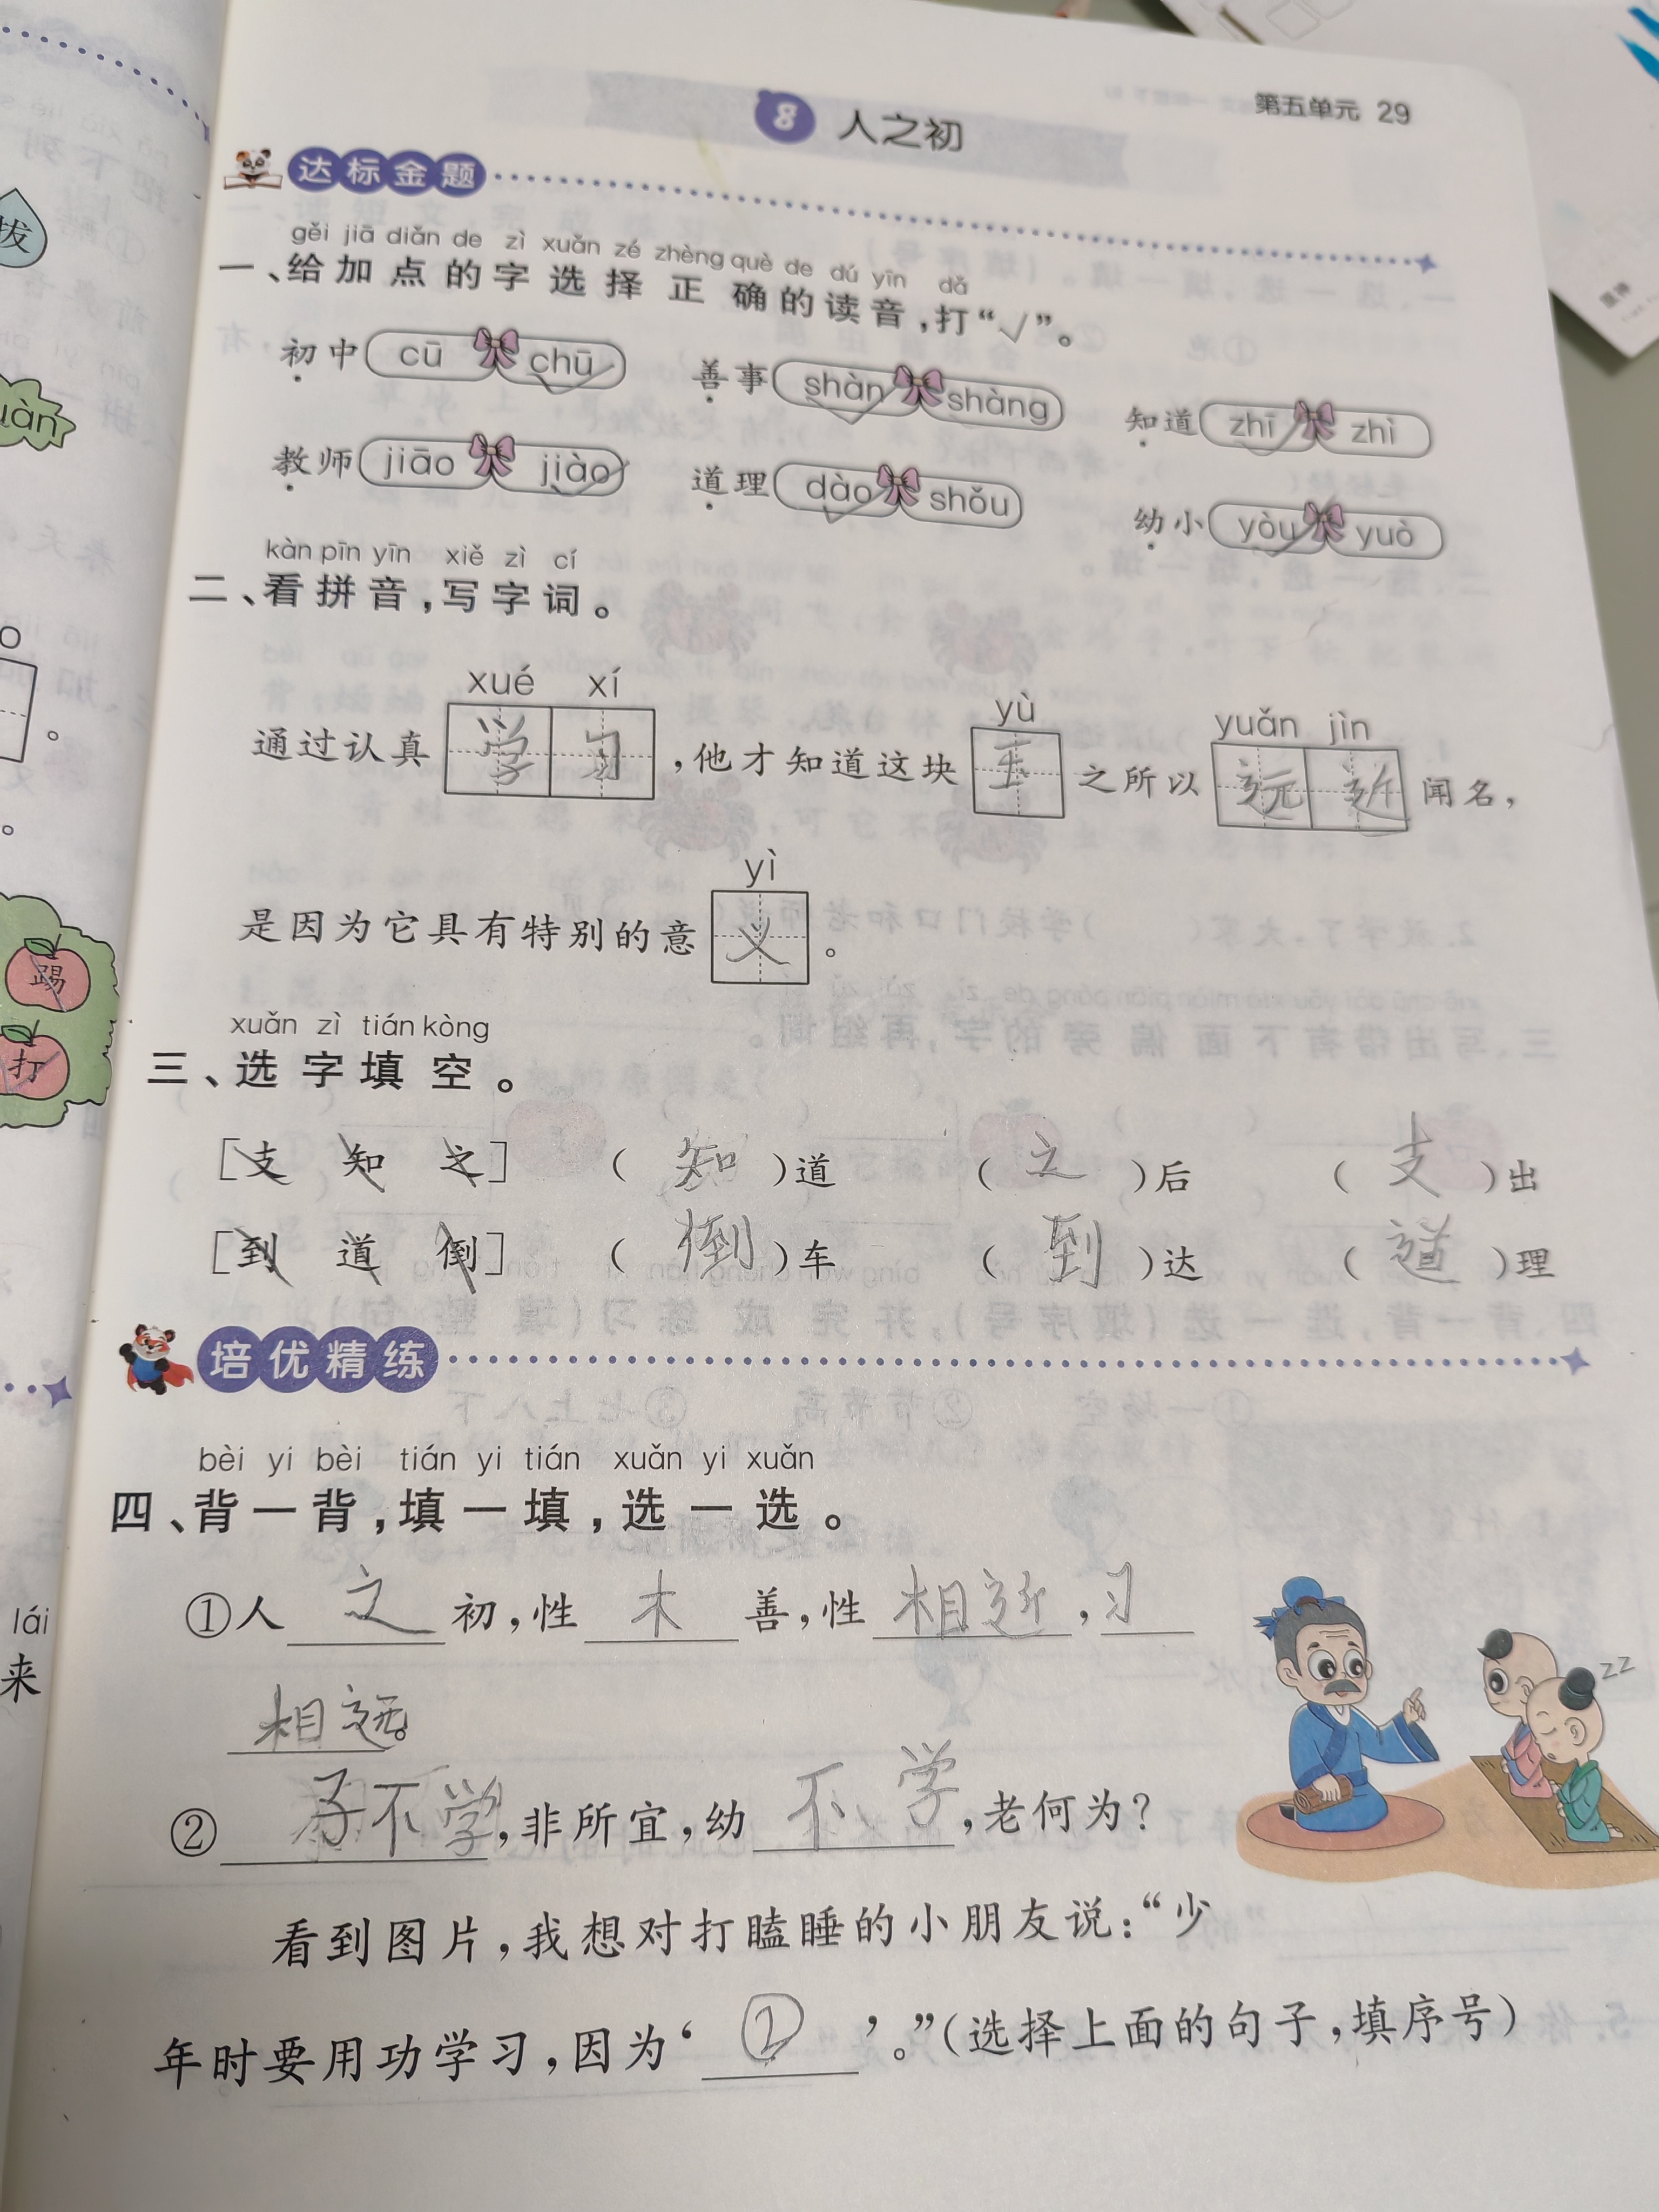 第五单元 29
8 人之初
达标金题
gěi jiā diǎn de zì xuǎn zé zhèng què de dú yīn dǎ
一、给加点的字选择正确的读音,打“√”。
初中 cū chū 善事 shàn shàng 知道 zhī zhì
教师 jiāo jiào 道理 dào shǒu 幼小 yòu yuò
kàn pīn yīn xiě zì cí
二、看拼音,写字词。
xué xí yù yuǎn jìn
通过认真 学习 ,他才知道这块 玉 之所以 远近 闻名,
yì
是因为它具有特别的意 义 。
xuǎn zì tián kòng
三、选字填空。
[支 知 之] ( 知 )道 ( 之 )后 ( 支 )出
[到 道 倒] ( 倒 )车 ( 到 )达 ( 道 )理
培优精练
bèi yi bèi tián yi tián xuǎn yi xuǎn
四、背一背,填一填,选一选。
①人 之 初,性 木 善,性 相近 ,习
相远。
② 子不学,非所宜,幼 不学 ,老何为?
看到图片,我想对打瞌睡的小朋友说:“少
年时要用功学习,因为‘ ② ’。”(选择上面的句子,填序号)
zz
拔
uàn
o
。
。
踢
打
lái
来